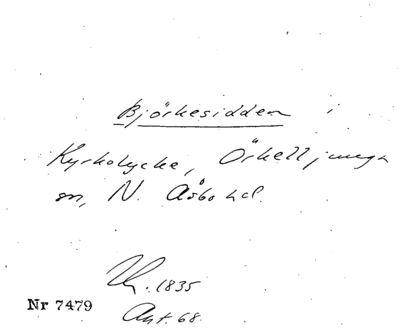 Björkesidden i
Kyrkolycke, Örkelljunga
sn, N. Åsbo hd.
. 1835
Nr 7479
Ant. 68.